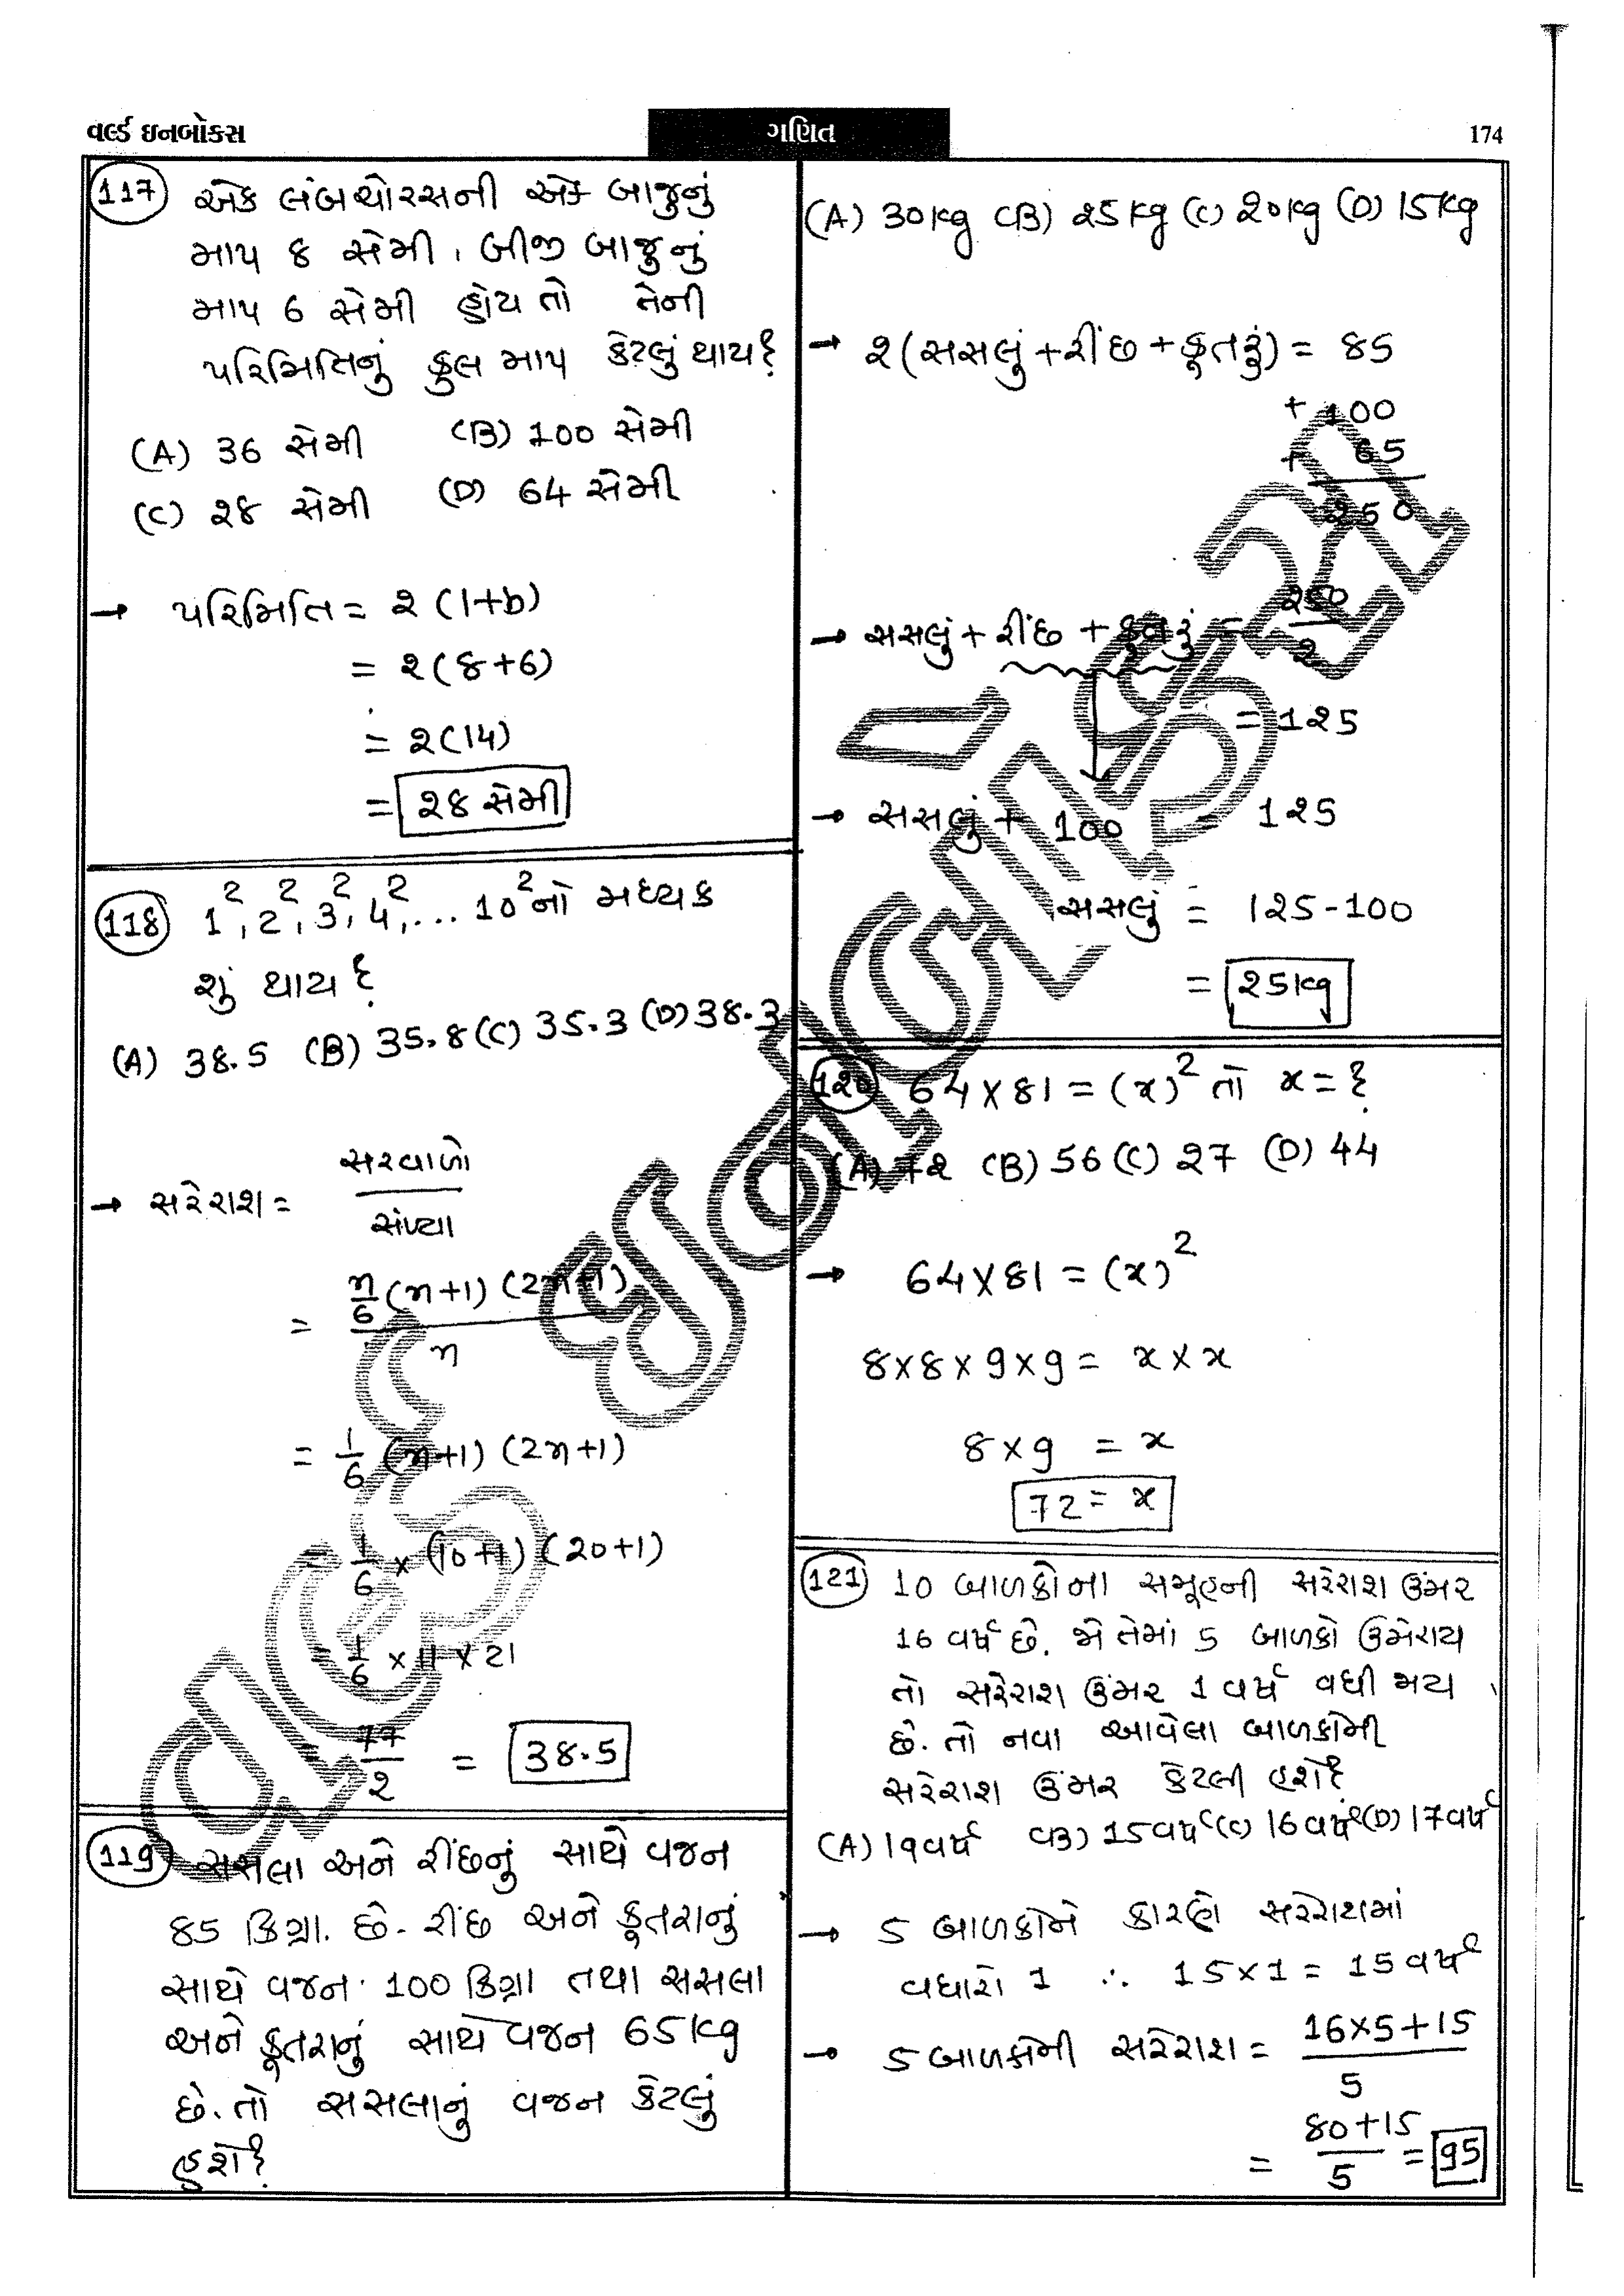 વર્લ્ડ ઇનબોક્સ
ગણિત
174
117 એક લંબચોરસની એક બાજુનું
માપ 8 સેમી, બીજી બાજુનું
માપ 6 સેમી હોય તો તેની
પરિમિતિનું કુલ માપ કેટલું થાય?
(A) 36 સેમી (B) 100 સેમી
(C) ૨8 સેમી (D) 64 સેમી
→ પરિમિતિ = ૨ (l+b)
= ૨(8+6)
= ૨(14)
= ૨8 સેમી
118 1², 2², 3², 4², ... 10² નો મધ્યક
શું થાય?
(A) 38.5 (B) 35.8 (C) 35.3 (D) 38.3
→ સરેરાશ = સરવાળો
સંખ્યા
= n/6 (n+1) (2n+1)
n
= 1/6 (n+1) (2n+1)
= 1/6 × (10+1) (20+1)
= 1/6 × 11 × 21
= 77/૨ = 38.5
119 સસલા અને રીંછનું સાથે વજન
85 કિગ્રા. છે. રીંછ અને કૂતરાનું
સાથે વજન 100 કિગ્રા તથા સસલા
અને કૂતરાનું સાથે વજન 65 kg
છે. તો સસલાનું વજન કેટલું
હશે?
(A) 30 kg (B) ૨5 kg (C) ૨0 kg (D) 15 kg
→ ૨ (સસલું + રીંછ + કૂતરું) = 85
+ 100
+ 65
૨50
→ સસલું + રીંછ + કૂતરું = ૨50
૨
= 1૨5
→ સસલું + 100 1૨5
સસલું = 1૨5 - 100
= ૨5 kg
1૨0 64 × 81 = (x)² તો x = ?
(A) 7૨ (B) 56 (C) ૨7 (D) 44
→ 64 × 81 = (x)²
8 × 8 × 9 × 9 = x × x
8 × 9 = x
72 = x
121 10 બાળકોના સમૂહની સરેરાશ ઉંમર
16 વર્ષ છે. જો તેમાં 5 બાળકો ઉમેરાય
તો સરેરાશ ઉંમર 1 વર્ષ વધી જાય
છે. તો નવા આવેલા બાળકોની
સરેરાશ ઉંમર કેટલી હશે?
(A) 19 વર્ષ (B) 15 વર્ષ (C) 16 વર્ષ (D) 17 વર્ષ
→ 5 બાળકોને કારણે સરેરાશમાં
વધારો 1 ∴ 15 × 1 = 15 વર્ષ
→ 5 બાળકોની સરેરાશ = 16×5+15
5
= 80+15 = 95
5